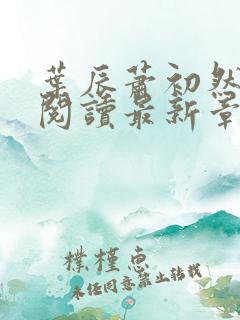 葉辰蕭初然
閱讀最新章
樸槿惠
未经同意禁止转载